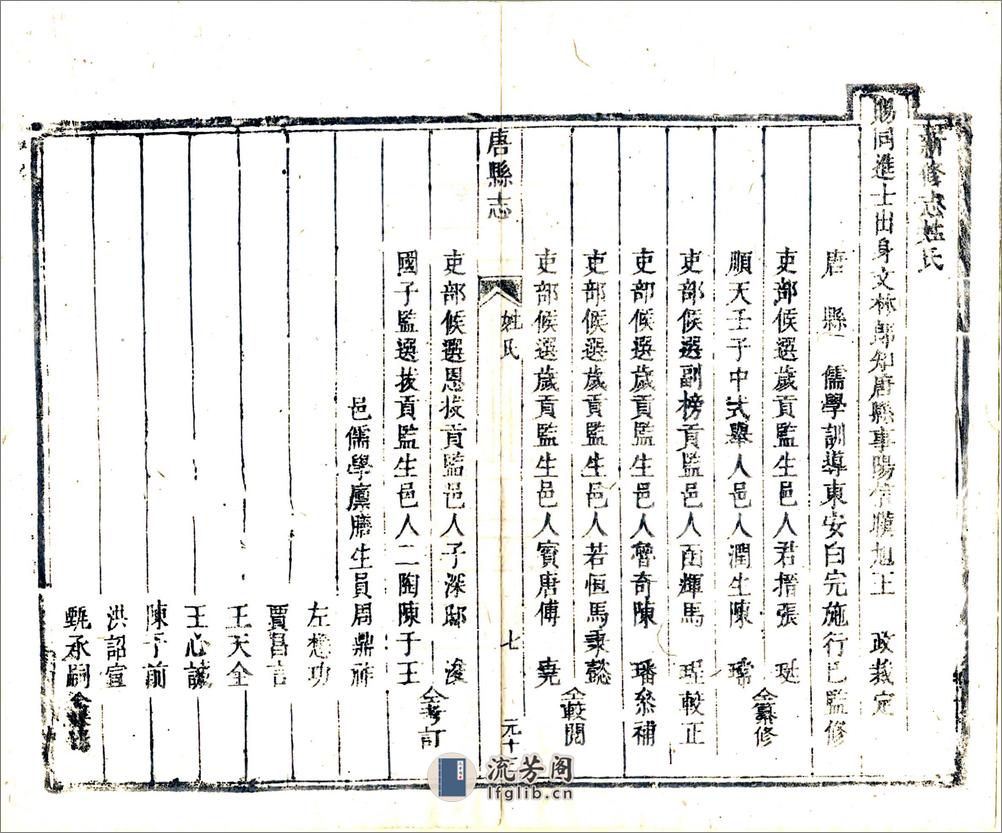 新修志姓氏
賜同進士出身文林郎知唐縣事陽信聯旭王 政裁定
唐 縣 儒學訓導東安白完施行已監修
吏部候選歲貢監生邑人君搢張 珽
順天壬子中式舉人邑人潤生陳 霈
仝纂修
吏部候選副榜貢監邑人函輝馬 珵較正
吏部候選歲貢監生邑人魯奇陳 璠叅補
吏部候選歲貢監生邑人若恒馬秉懿
吏部候選歲貢監生邑人賓唐傅 堯
仝較閱
唐縣志
姓氏
七
元十
吏部候選恩拔貢監邑人子深邸 浚
國子監選拔貢監生邑人二陶陳于王
仝考訂
邑儒學廩膳生員周鼎祚
左懋功
賈昌言
王天全
王心誠
陳于前
洪詔宣
甄承嗣仝
流芳阁
lfglib.cn